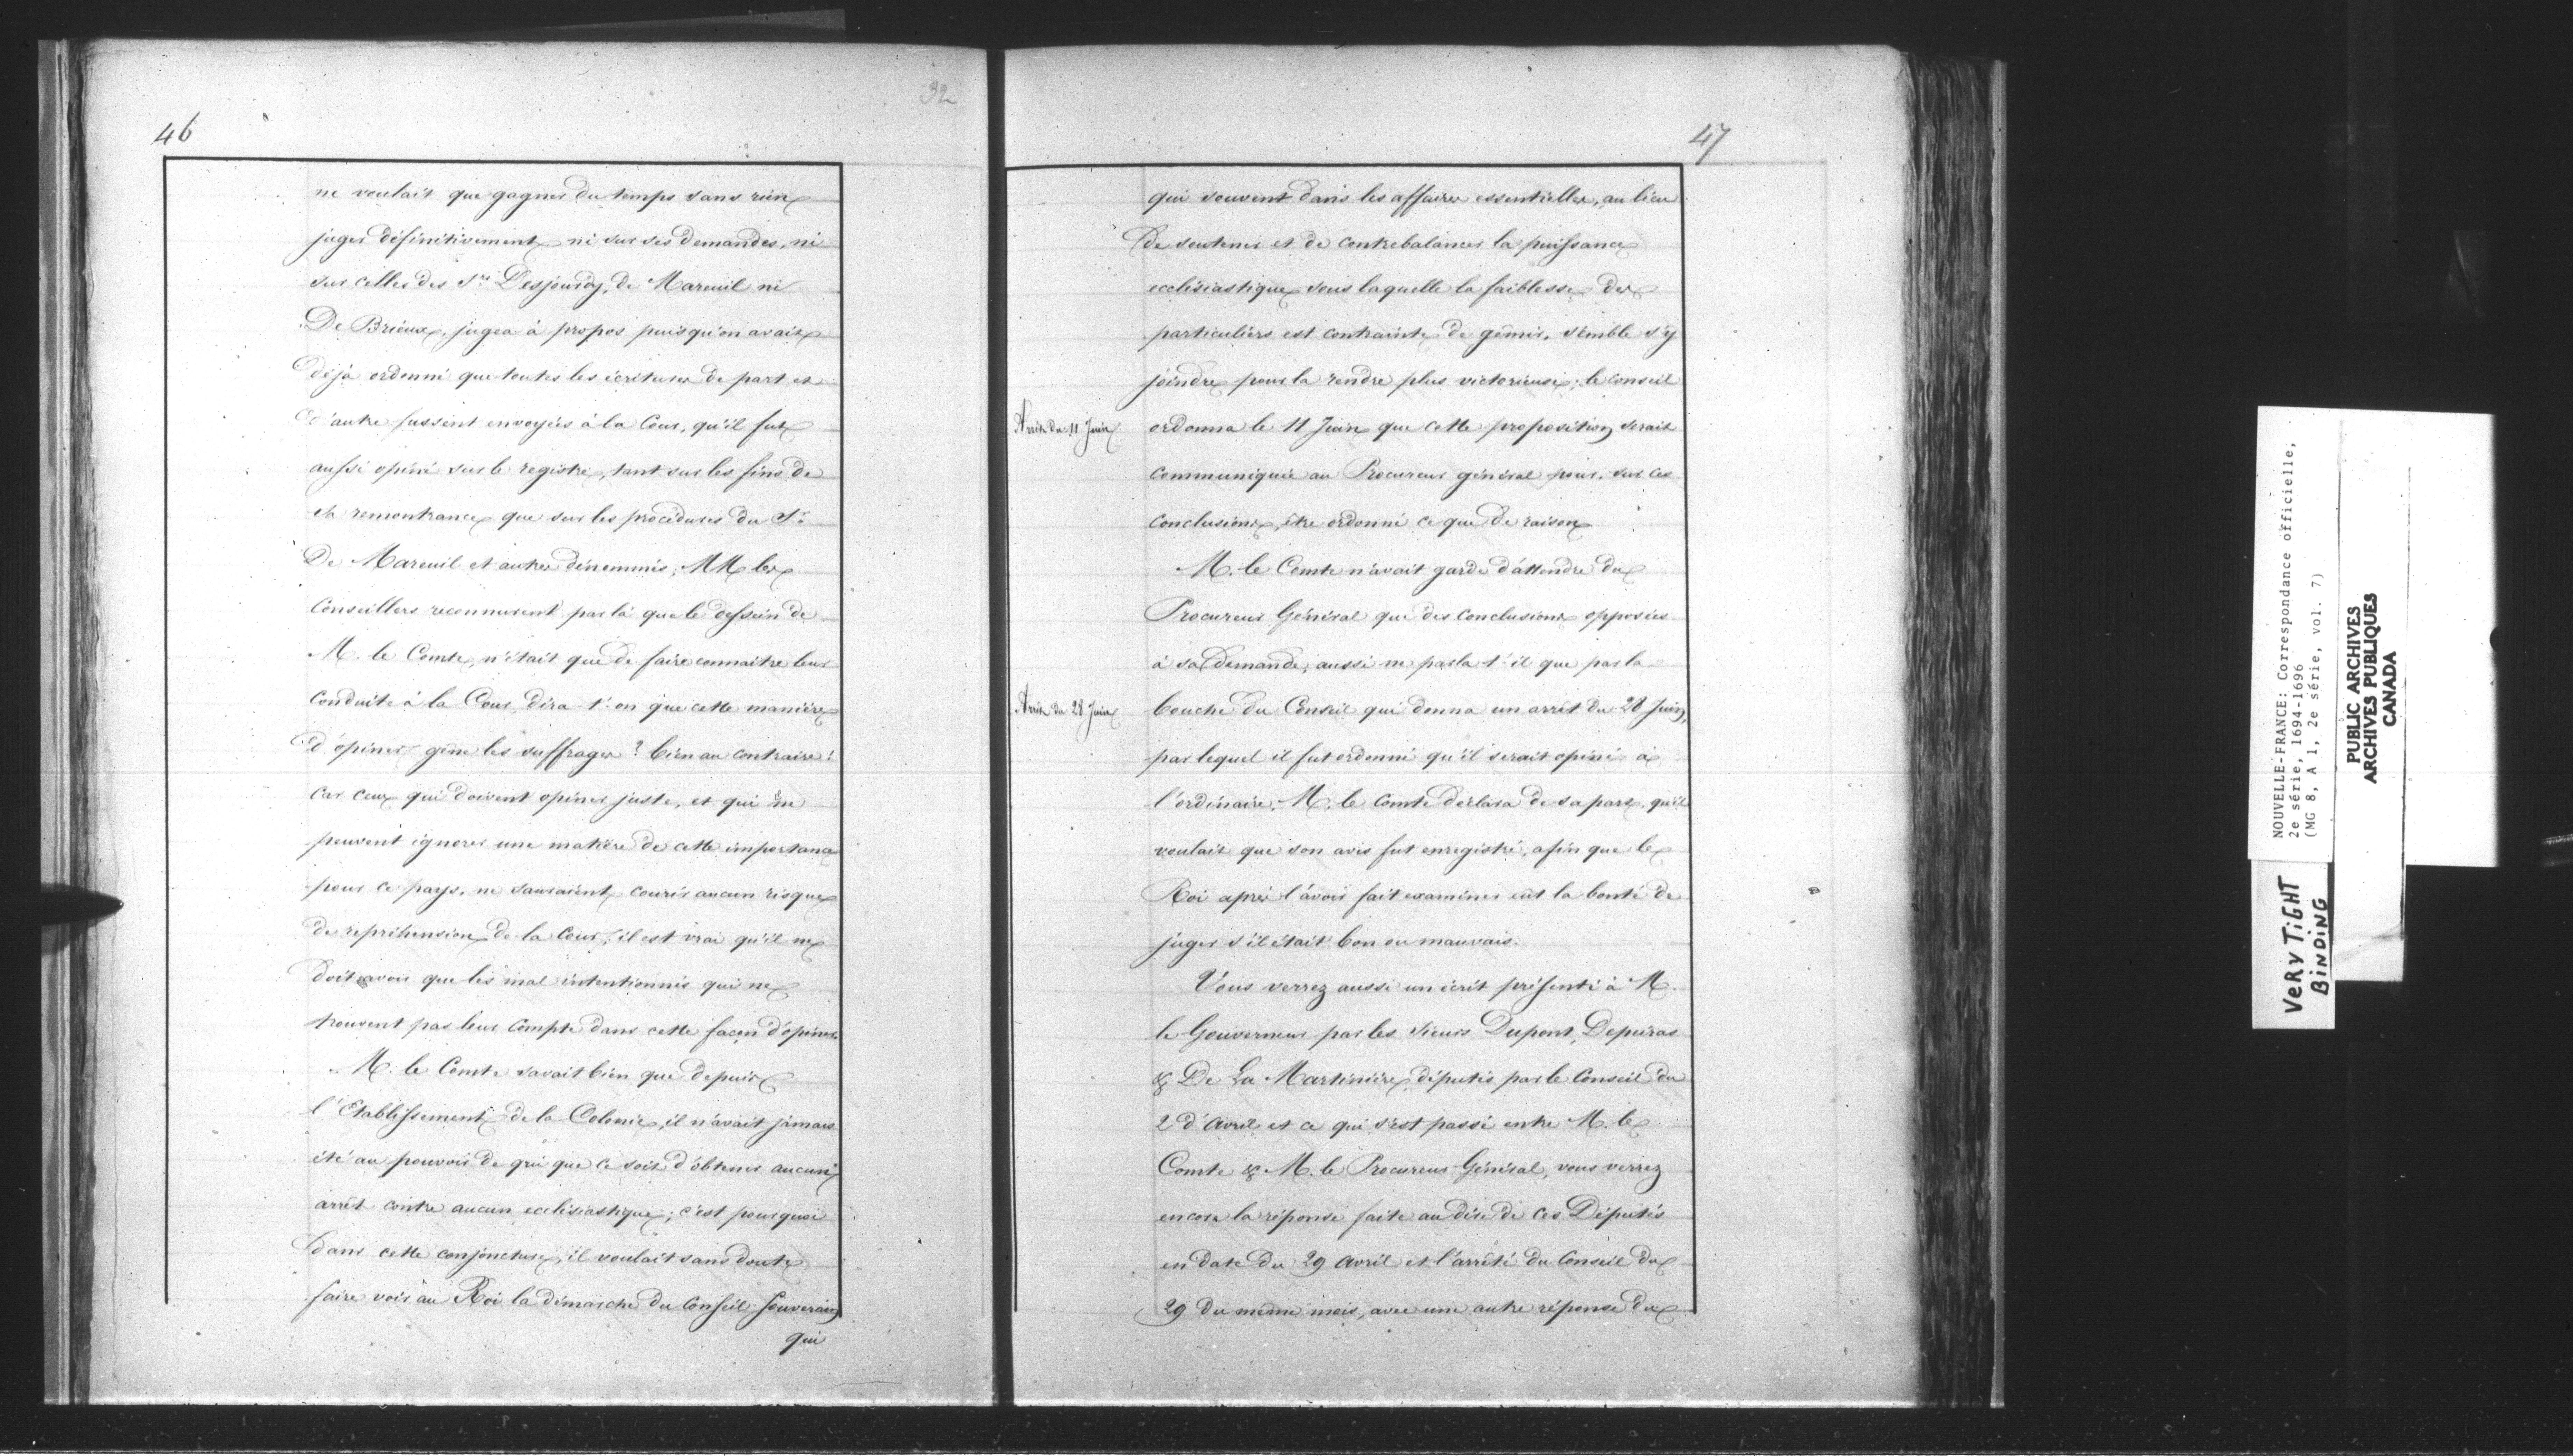 32
46
ne voulait que gagner du temps sans rien
juger définitivement ni sur ses demandes, ni
sur celles des Srs Desjourdy, de Mareuil ni
De Brieux, jugea à propos puisqu'on avait
déjà ordonné que toutes les écritures de part et
d'autre fussent envoyées à la Cour, qu'il fut
aussi opiné sur le registre, tant sur les fins de
et remontrance que sur les procédures du Sr
De Mareuil et autres dénommés; MM les
Conseillers reconnurent par là que le dessein de
M. le Comte, n'était que de faire connaitre leur
conduite à la Cour, dira-t'on que cette manière
d'opiner gêne les suffrages? bien au contraire!
car ceux qui doivent opiner juste, et qui ne
peuvent ignorer une matière de cette importance
pour ce pays, ne sauraient courir aucun risque
de repréhension de la Cour; il est vrai qu'il ne
doit avoir que les mal intentionnés qui ne
trouvent pas leur compte dans cette façon d'opiner.
M. le Comte savait bien que depuis
l'Etablissement de la Colonie, il n'avait jamais
été au pouvoir de qui que ce soit d'obtenir aucun
arrêt contre aucun ecclésiastique; c'est pourquoi
dans cette conjoncture, il voulait sans doute
faire voir au Roi la démarche du Conseil Souverain
qui
47
qui souvent dans les affaires essentielles, au lieu
de soutenir et de contrebalancer la puissance
ecclésiastique sous laquelle la faiblesse des
particuliers est contrainte de gémir, semble s'y
joindre pour la rendre plus victorieuse; le conseil
Arrêt du 11 Juin
ordonna le 11 Juin que cette proposition serait
communiquée au Procureur général pour, sur ces
conclusions, être ordonné ce que de raison
M. le Comte n'avait garde d'attendre du
Procureur Général que des conclusions opposées
à sa demande, aussi ne parla-t'il que par la
Arrêt du 28 Juin
bouche du Conseil qui donna un arrêt du 28 Juin,
par lequel il fut ordonné qu'il serait opiné à
l'ordinaire. M. le Comte déclara de sa part, qu'il
voulait que son avis fut enregistré, afin que le
Roi après l'avoir fait examiner eût la bonté de
juger s'il était bon ou mauvais.
Vous verrez aussi un écrit présenté à M.
le Gouverneur par les Sieurs Dupont, Depeiras
& De La Martinière, députés par le Conseil du
2 d'avril et ce qui s'est passé entre M. le
Comte & M. le Procureur Général, vous verrez
encore la réponse faite au dire de ces Députés
en date du 29 avril et l'arrêté du Conseil du
29 du même mois, avec une autre réponse du
NOUVELLE-FRANCE: Correspondance officielle,
2e série, 1694-1696
(MG 8, A 1, 2e série, vol. 7)
PUBLIC ARCHIVES
ARCHIVES PUBLIQUES
CANADA
VERY TIGHT
BINDING